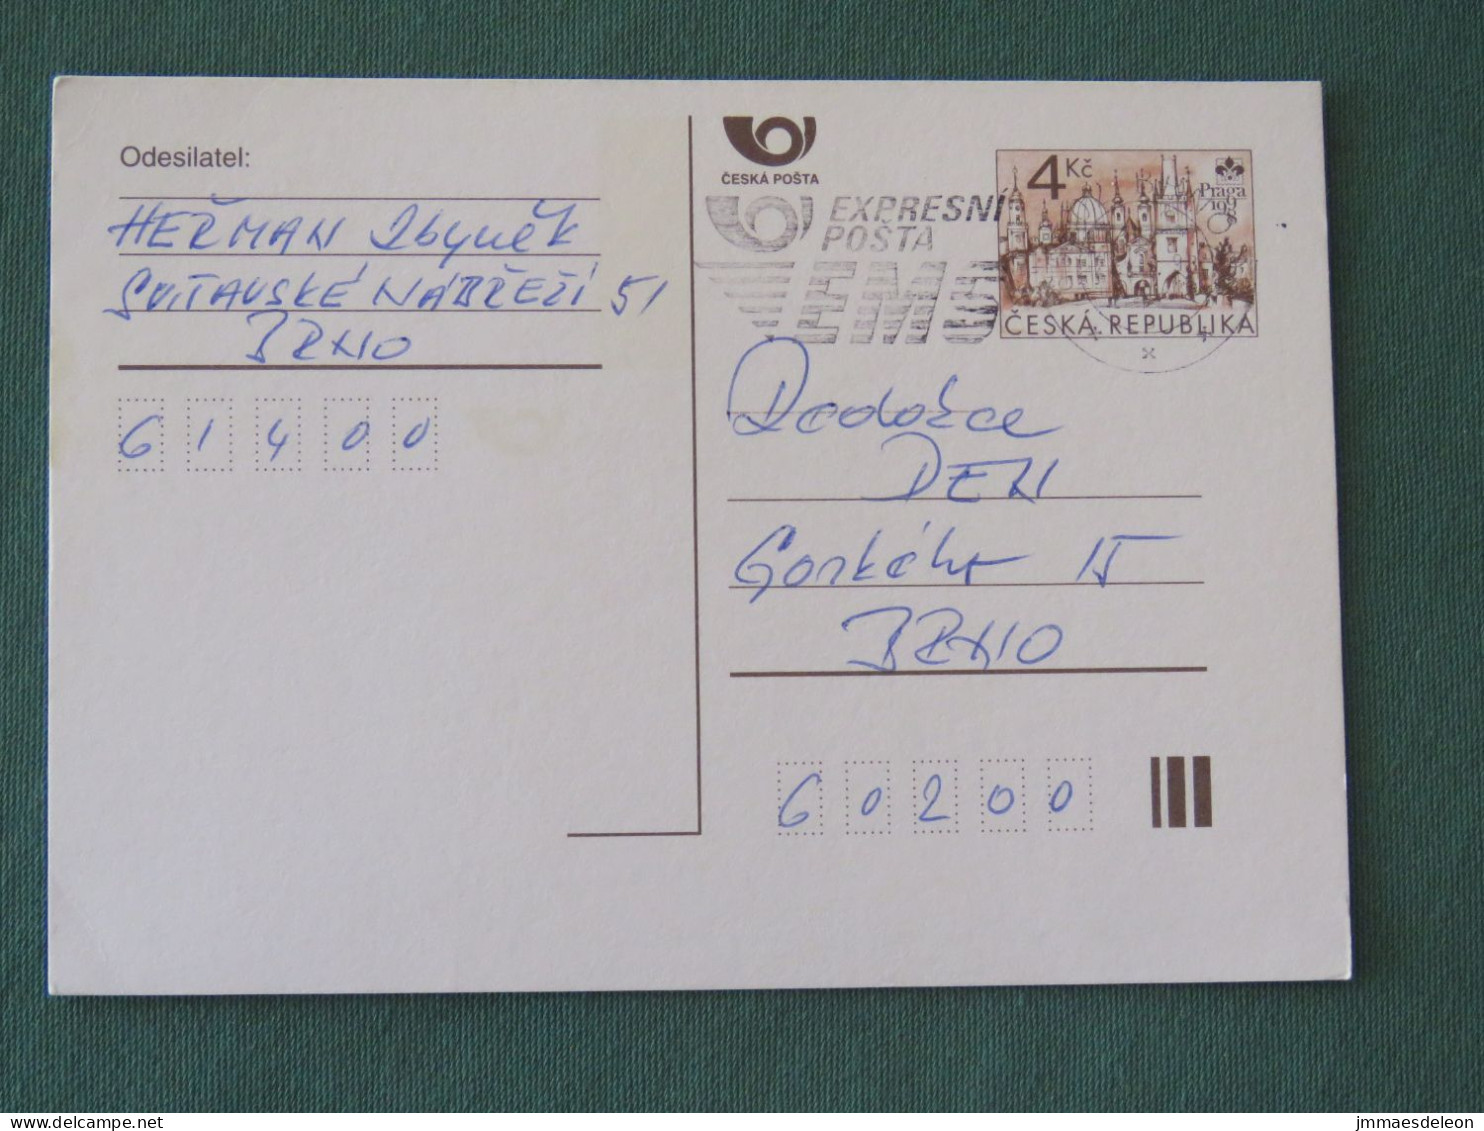 Odesilatel:
HEŘMAN Zbyněk
SVITAVSKÉ NÁBŘEŽÍ 51
BRNO
61400
ČESKÁ POŠTA
EXPRESNÍ
POŠTA
EMS
4 Kč
Praga
1998
ČESKÁ REPUBLIKA
DENI
Gorkého 15
BRNO
60200
www.delcampe.net
jmmaesdeleon